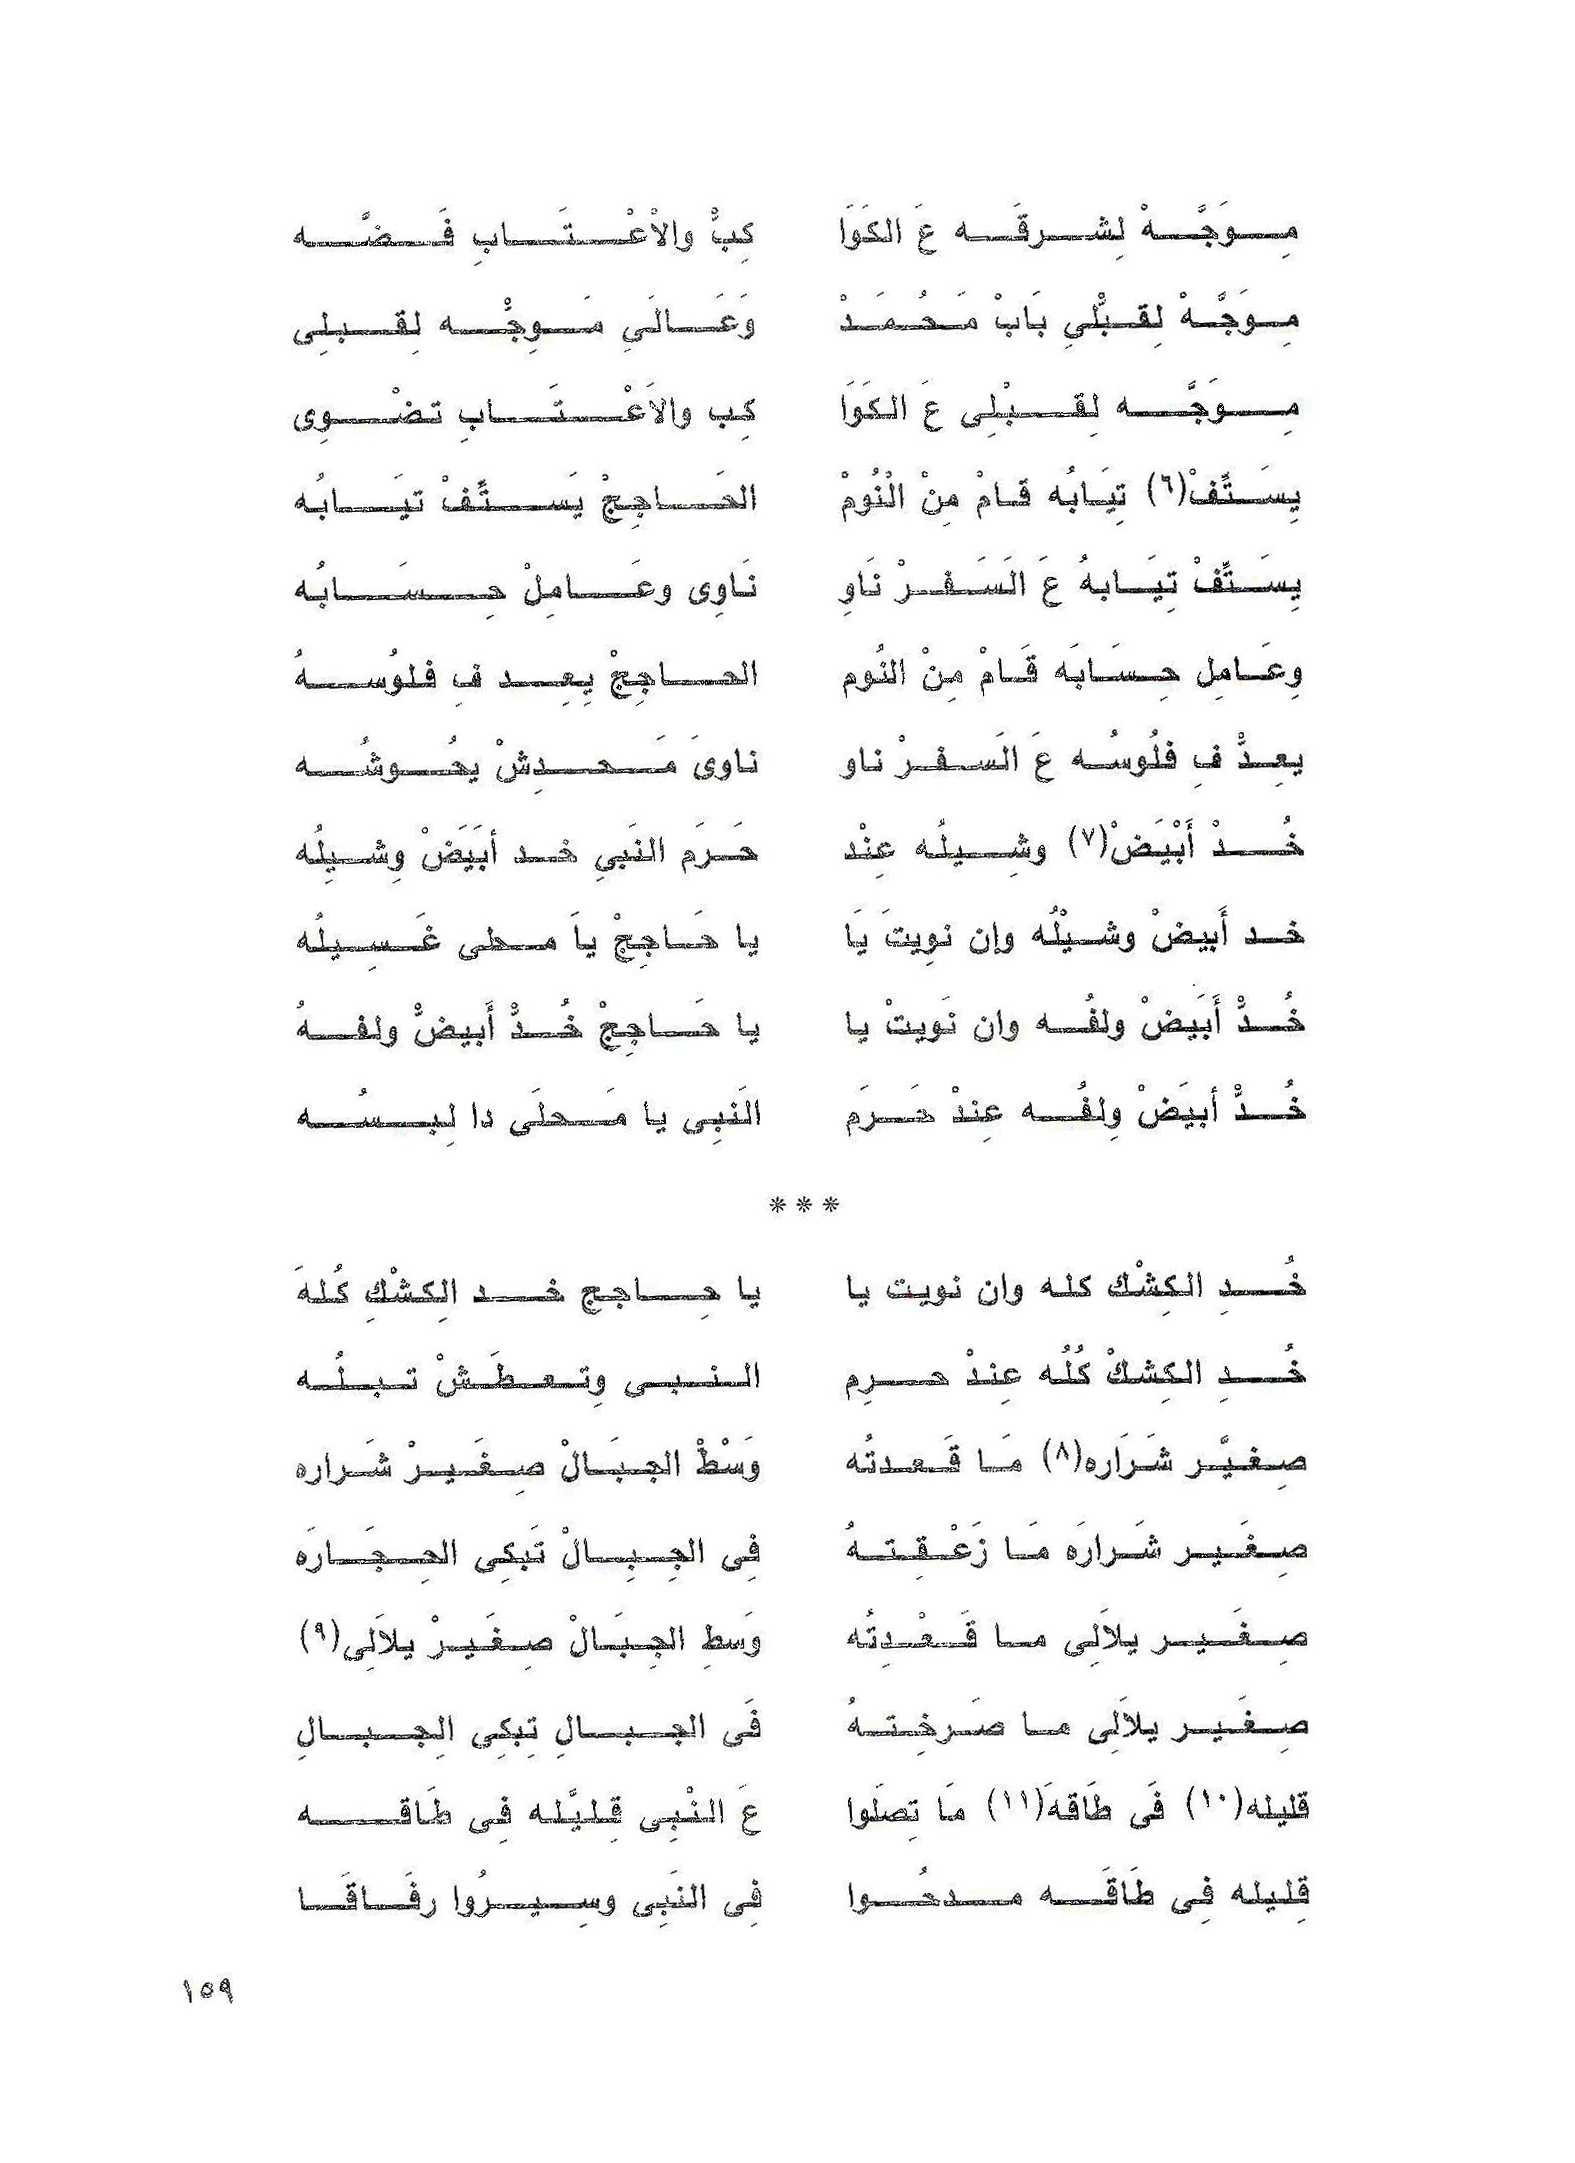 مِوَجَّهْ لِشرقَه عَ الكَوَا كِبْ والْاعْتَابِ فَضَّه
مِوَجَّهْ لِقبْلْيِ بَابْ مَحُمَدْ وَعَالَيِ مَوِجْه لِقبلِى
مِوَجَّه لِقبْلِى عَ الكَوَا كِب والاَعْتَابِ تضْوِى
يِسَتِّفْ(٦) تِيَابُه قامْ مِنْ الْنُومْ الحَاجِجْ يَستِّفْ تيَابُه
يِسَتِّفْ تِيَابهُ عَ الَسَفرْ نَاوِ نَاوِى وعَامِلْ حِسَابُه
وِعَامِل حِسَابَه قَامْ مِنْ النُوم الحاجِجْ يِعِد فِ فلوُسهُ
يعِدْ فِ فلُوسُه عَ الَسفرْ ناو ناوىَ مَحدِشْ يحُوشُه
خُدْ أَبْيَضْ(٧) وشِيلُه عِنْد حَرَم النَبيِ خد أبَيَضْ وِشيِلُه
خد أَبيضْ وشيْلُه وإن نوِيتَ يَا يا حَاجِجْ ياَ محلى غَسِيلُه
خُدْ أَبَيَضْ ولفُه وان نَويتْ يا يا حَاجِجْ خُدْ أَبيضْ ولفهُ
خُدْ أبيَضْ وِلفُه عِندْ حَرَم الَنبِى يا مَحلَى دا لِبسُه
***
خُدِ الكِشْك كله وان نويت يا يا حِاجج خد الِكِشْكِ كُلهَ
خُدِ الكِشكْ كُلُه عِندْ حرِم النبى وِتعطَشْ تبلُه
صِغيَّر شَرَاره(٨) مَا قَعدتُه وَسْطْ الجبَالْ صِغَيرْ شَراره
صِغَير شَرارَه مَا زَعْقِتهُ فِى الجِبِالْ تَبكِى الحِجَارَه
صِغَير يلاَلِى ما قَعْدِتُه وَسطِ الجِبَالْ صِغَيرْ يلاَلِى(٩)
صِغَير يلالَِى ما صَرخِتهُ فَى الجبالِ تِبكِى الِجبالِ
قليله(١٠) فَى طَاقهَ(١١) مَا تِصلَوا عَ النْبِى قِليَّله فِى طَاقه
قِليله فِى طَاقَه مدحُوا فِى النَبِى وسِيرُوا رفَاقَا
١٥٩